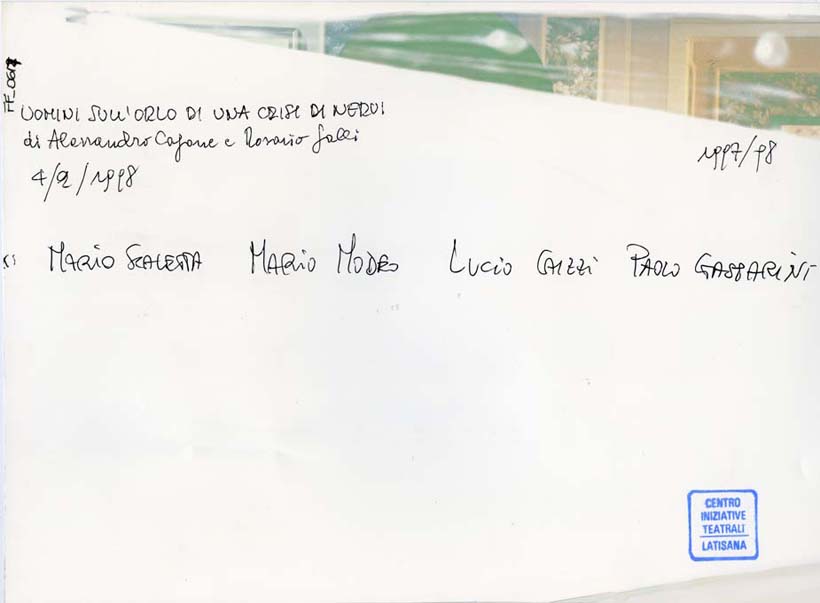 FF_0617
UOMINI SULL'ORLO DI UNA CRISI DI NERVI
di Alessandro Capone e Rosario Galli
4/2/1998
1997/98
MARIO SCALETTA MARIO MODEO LUCIO CAIZZI PAOLO GASPARINI
CENTRO
INIZIATIVE
TEATRALI
LATISANA